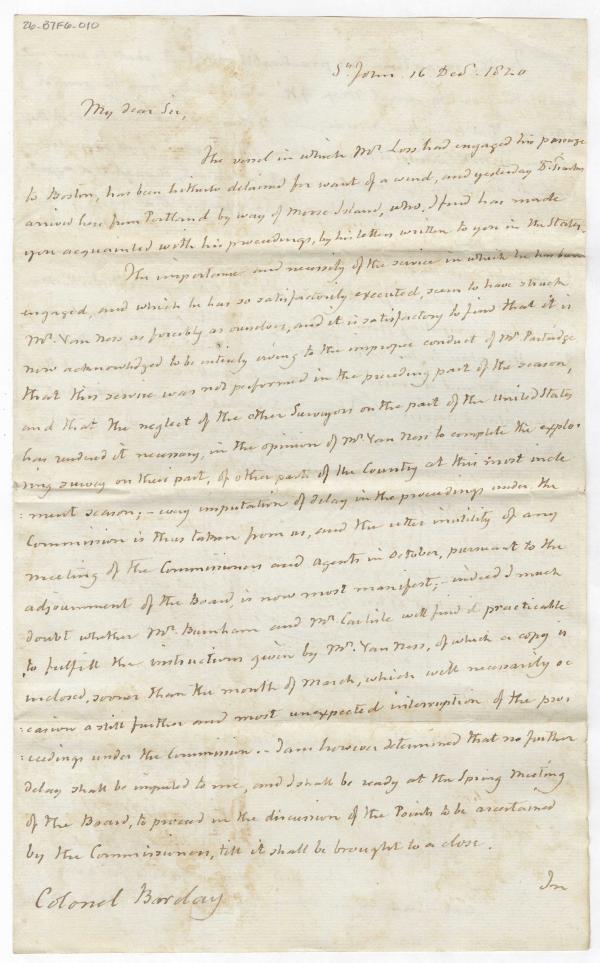 26-B7FG-010
St. John 16 Decr. 1820
My dear Sir,
The vessel in which Mr. Loss had engaged his passage
to Boston, has been hitherto detained for want of a wind, and yesterday Dr.
arrived here from Portland by way of Moose Island, who, I find has made
you acquainted with his proceedings, by his letters written to you in the States.
The importance and necessity of the service in which he has been
engaged, and which he has so satisfactorily executed, seem to have struck
Mr. Van Ness as forcibly as ourselves, and it is satisfactory to find that it is
now acknowledged to be entirely owing to the improper conduct of Mr. Partridge
that this service was not performed in the preceding part of the season,
and that the neglect of the other Surveyors on the part of the United States
has rendered it necessary, in the opinion of Mr. Van Ness to complete the explo-
ring survey on their part, of other parts of the Country at this most incle
:ment season; - every imputation of delay in the proceedings under the
Commission is thus taken from us, and the utter inutility of any
meeting of the Commissioners and Agents in October, pursuant to the
adjournment of the Board, is now most manifest; - indeed I much
doubt whether Mr. Burnham and Mr. Carlile will find it practicable
to fulfill the instructions given by Mr. Van Ness, of which a copy is
inclosed, sooner than the month of March, which will necessarily oc
:casion a still further and most unexpected interruption of the pro:
:ceedings under the Commission. - I am however determined that no further
delay shall be imputed to me, and I shall be ready at the Spring Meeting
of the Board, to proceed in the discussion of the Points to be ascertained
by the Commissioners, till it shall be brought to a close.
In
Colonel Barclay